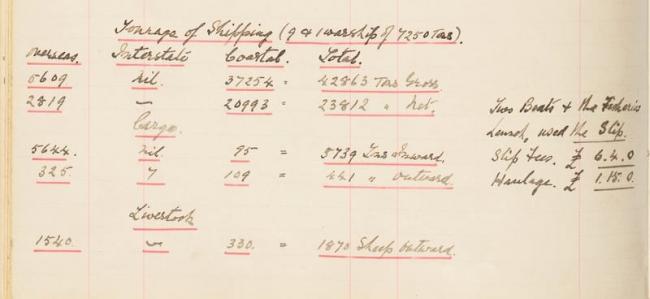 Tonnage of Shipping (9 & 1 warship of 7250 Tons).
Overseas. Interstate Coastal. Total.
5609 nil. 37254 = 42863 Tons Gross
2819 " 20993 = 23812 " Net. Two Boats & the Fisheries
Cargo. Launch, used the Slip.
5644. nil. 95 = 5739 Tns Inward. Slip Fees. £ 6.4.0
325 7 109 = 441 " Outward. Haulage. £ 1.15.0.
Livestock
1540. " 330. = 1870 Sheep Outward.